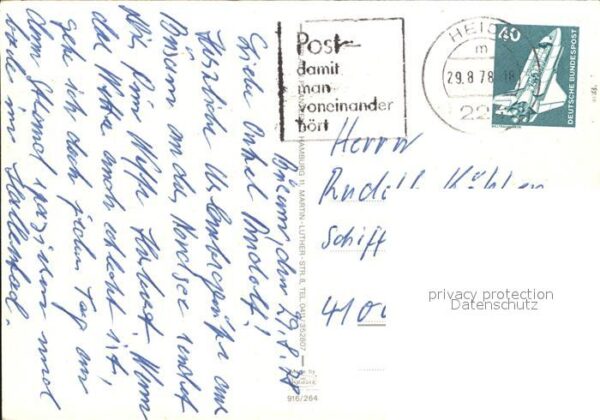 Büsum, den 29.8.78
Liebe Onkel Rudolf!
Herzliche Urlaubsgrüße aus
Büsum an der Nordsee sendet
Dir Dein Neffe Herbert. Wenn
das Wetter auch schlecht ist,
gehe ich doch jeden Tag am
dem Strand spazieren und
bade im Hallenbad.
Post-
damit
man
voneinander
hört
HEIDE
m
29.8.78-18
40
DEUTSCHE BUNDESPOST
Herrn
Rudolf
Schiff
4100
privacy protection
Datenschutz
HAMBURG 11, MARTIN-LUTHER-STR. 8, TEL. 040/352807
916/264